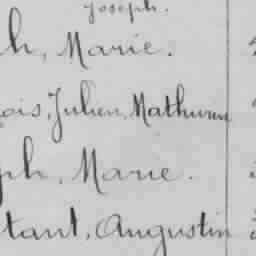 Joseph.
h, Marie.
ois, Julien, Mathurin
ph, Marie.
tant, Augustin